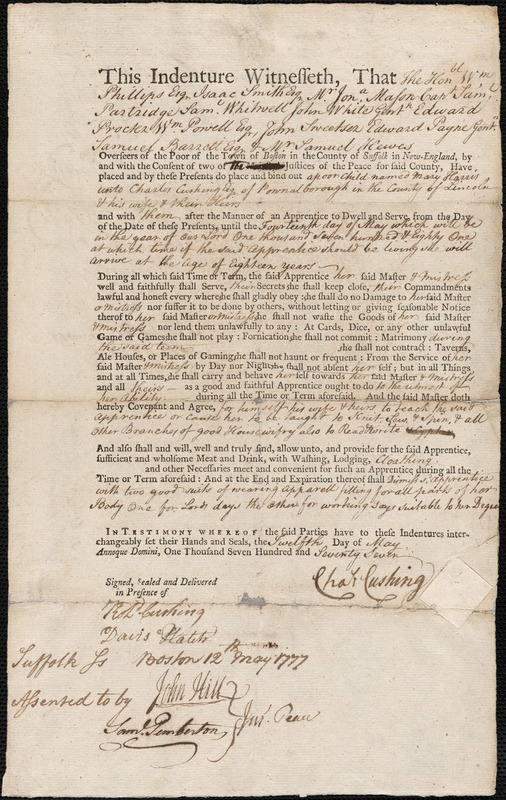 This Indenture Witnesseth, That the Honbl Wm
Phillips Esq. Isaac Smith Esq Mr Jona Mason Capt Saml
Partridge Saml Whitwell John White Gentn Edward
Procter Wm Powell Esq John Sweetser Edward Payne Gentn
Samuel Barrett Esq & Mr Samuel Hewes
Overseers of the Poor of the Town of Boston in the County of Suffolk in New-England, by
and with the Consent of two of the Justices of the Peace for said County, Have
placed and by these Presents do place and bind out a poor Child named Mary Harris
unto Charles Cushing Esq of Pownalborough in the County of Lincoln
& his wife & their Heirs
and with them after the Manner of an Apprentice to Dwell and Serve, from the Day
of the Date of these Presents, until the Fourteenth day of May which will be
in the year of our Lord One thousand Seven hundred & Eighty One
at which time if the said apprentice should be living She will
arrive at the age of Eighteen years
During all which said Time or Term, the said Apprentice her said Master & mistress
well and faithfully shall Serve, their Secrets she shall keep close, their Commandments
lawful and honest every where she shall gladly obey: she shall do no Damage to her said Master
or mistress nor suffer it to be done by others, without letting or giving seasonable Notice
thereof to her said Master or mistress she shall not waste the Goods of her said Master
& mistress nor lend them unlawfully to any: At Cards, Dice, or any other unlawful
Game or Games she shall not play: Fornication she shall not commit: Matrimony during
the said term she shall not contract: Taverns,
Ale Houses, or Places of Gaming she shall not haunt or frequent: From the Service of her
said Master & mistress by Day nor Night she shall not absent her self; but in all Things
and at all Times, she shall carry and behave her self towards her said Master & mistress
and all theirs as a good and faithful Apprentice ought to do to the utmost of
her ability during all the Time or Term aforesaid. And the said Master doth
hereby Covenant and Agree, for himself his wife & heirs to teach the said
Apprentice or Cause her to be taught to Knit, Sew & Spin, & all
other Branches of good Housewifry also to Read & write
And also shall and will, well and truly find, allow unto, and provide for the said Apprentice,
sufficient and wholsome Meat and Drink, with Washing, Lodging, Cloathing
and other Necessaries meet and convenient for such an Apprentice during all the
Time or Term aforesaid: And at the End and Expiration thereof shall Dismiss sd apprentice
with two good suits of wearing Apparell fitting for all parts of her
Body One for Lords days the other for working days suitable to her Degree
IN TESTIMONY WHEREOF the said Parties have to these Indentures inter-
changeably set their Hands and Seals, the Twelfth Day of May
Annoque Domini, One Thousand Seven Hundred and Seventy Seven
Chas Cushing
Signed, Sealed and Delivered
in Presence of
Robt Cushing
Davis Hatch
Suffolk Ss Boston 12th May 1777
Assented to by John Hill
Saml Pemberton Jus. Peace